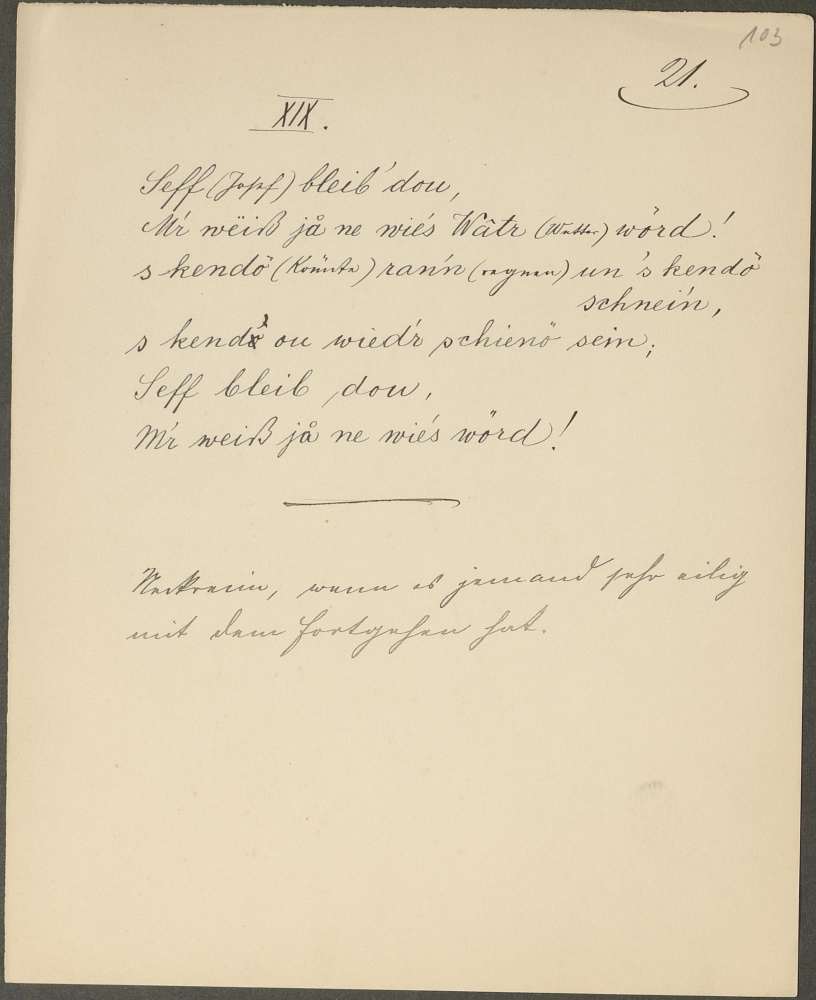 103
21.
XIX.
Seff (Josef) bleib' dou,
M'r wëiß jå ne wie's Wâtr (Wetter) wörd!
s kendö (Könnte) ran'n (regnen) un 's kendö
schnei'n,
s kendö ou wied'r schienö sein;
Seff bleib dou,
M'r weiß jå ne wie's wörd!
Neckreim, wenn es jemand sehr eilig
mit dem fortgehen hat.